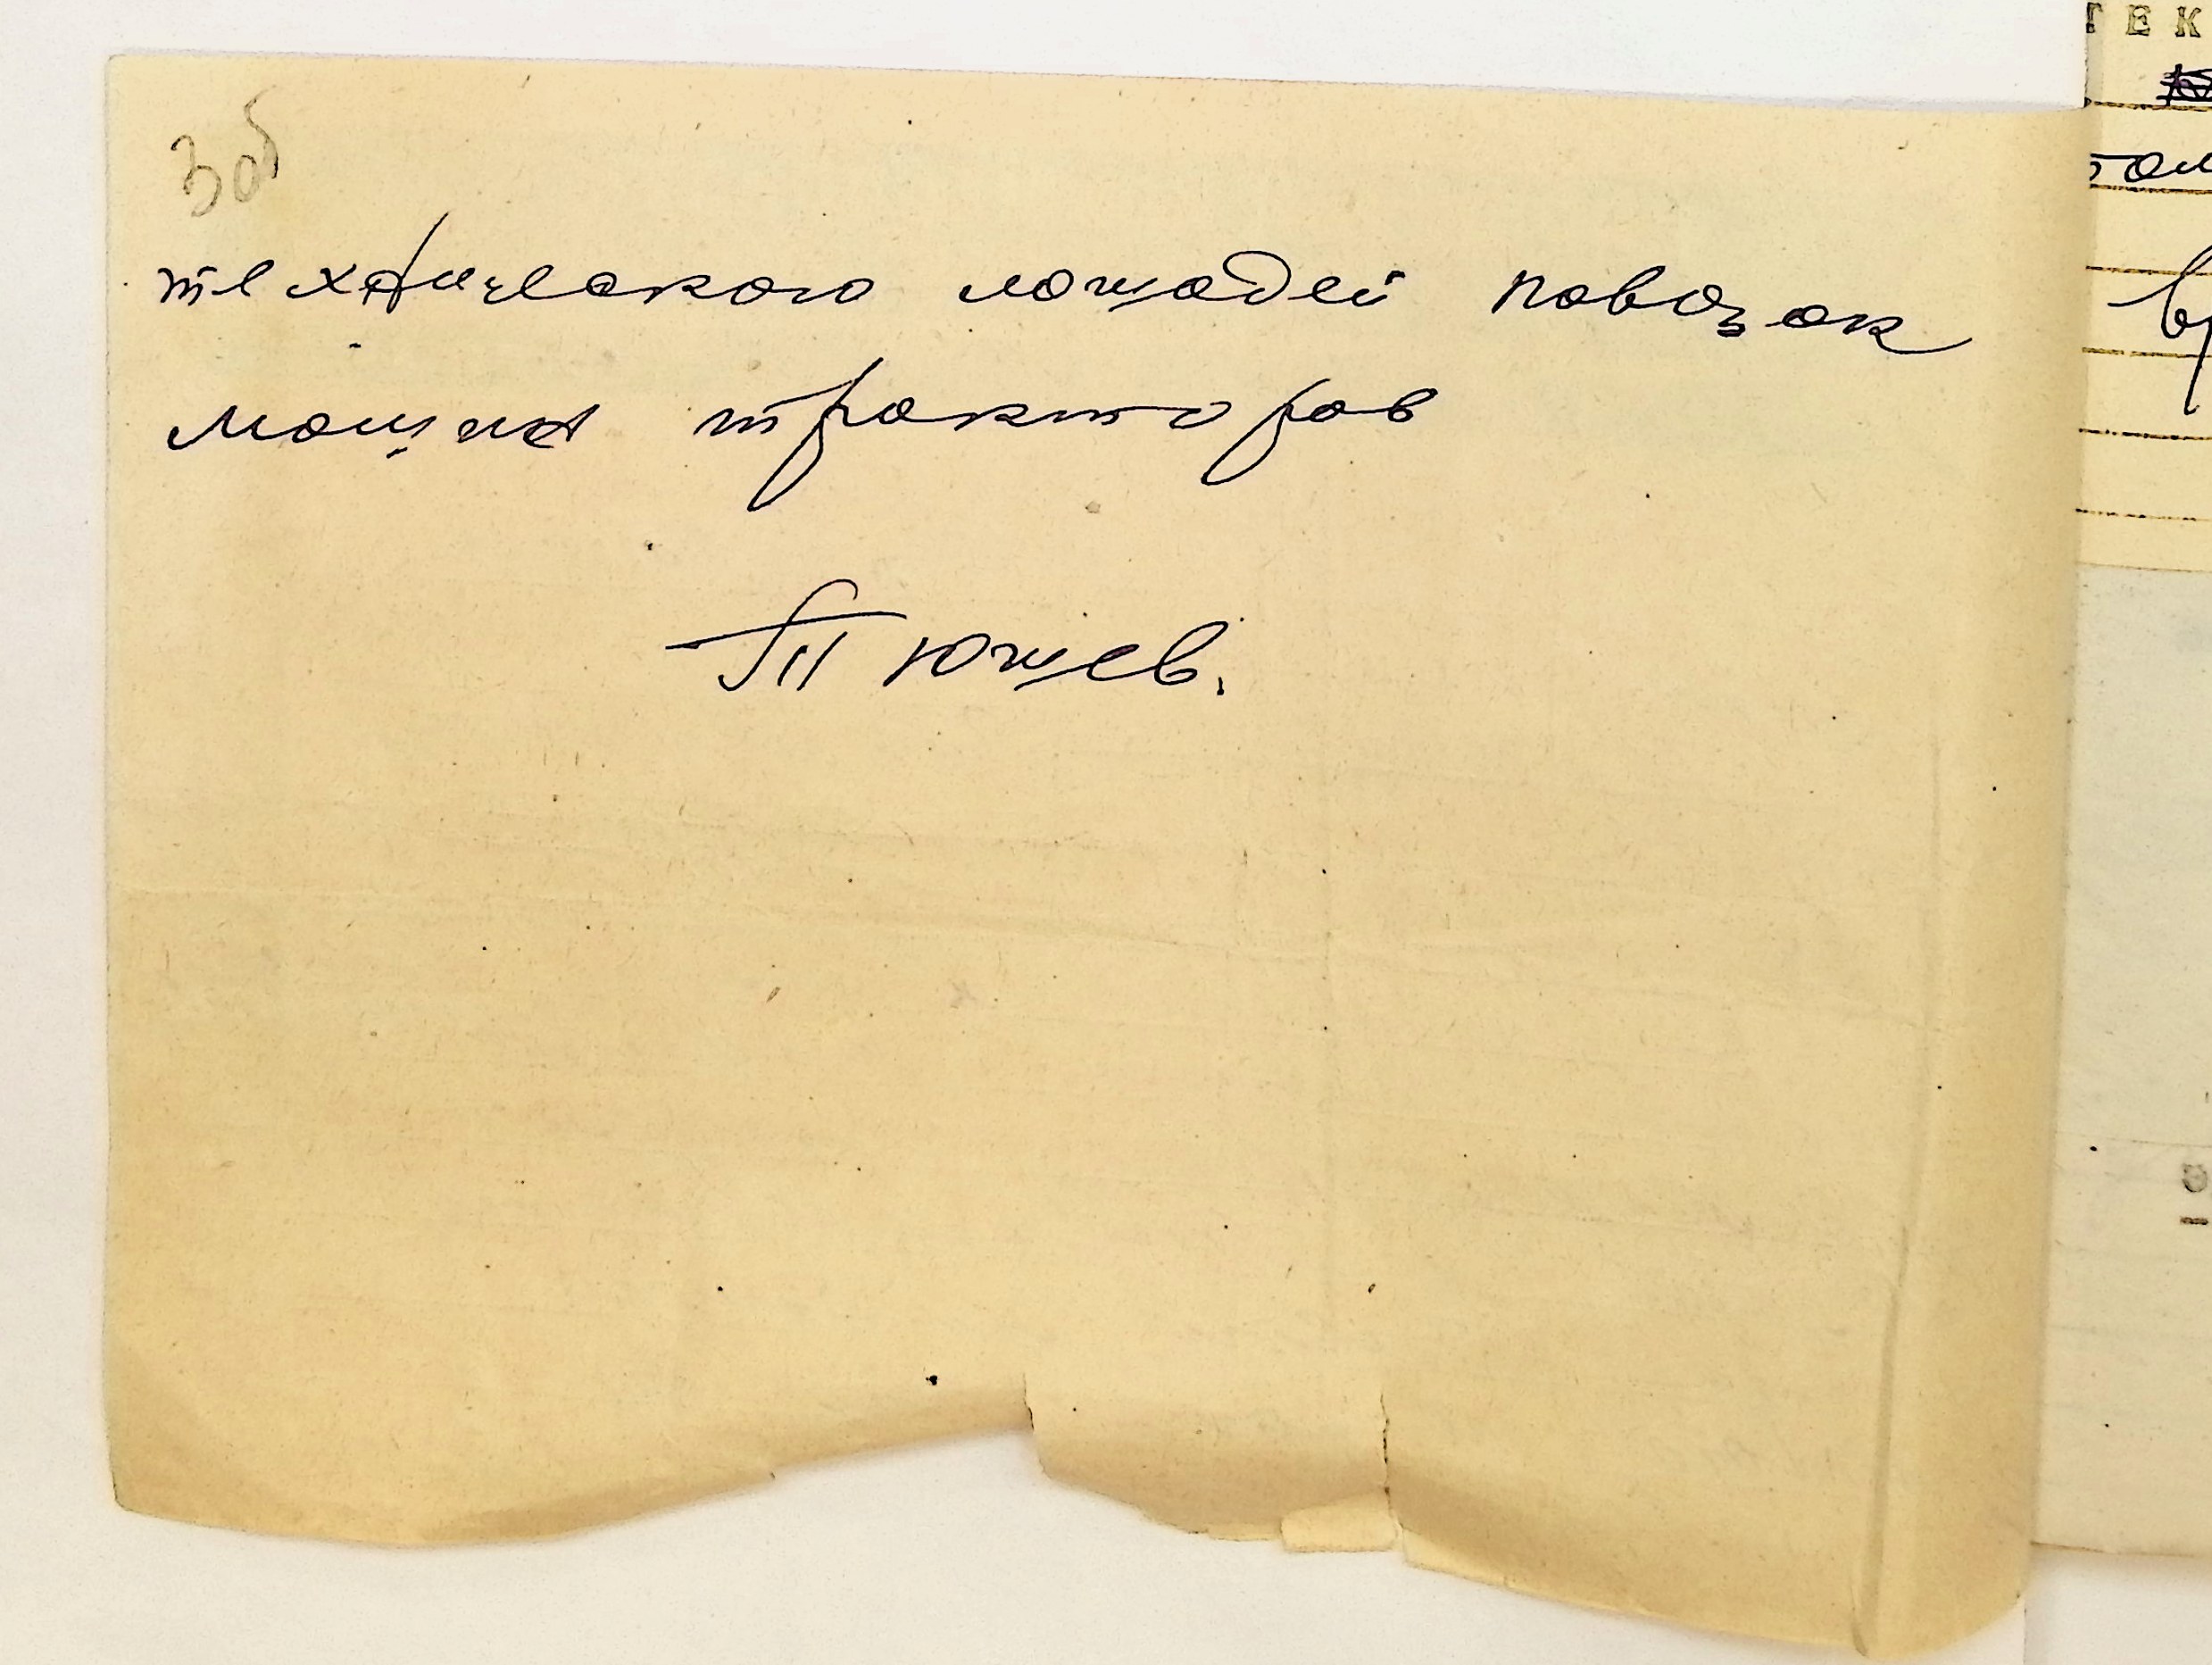 3об
технического лошадей повозок
машин тракторов
Тюшев.
ТЕК